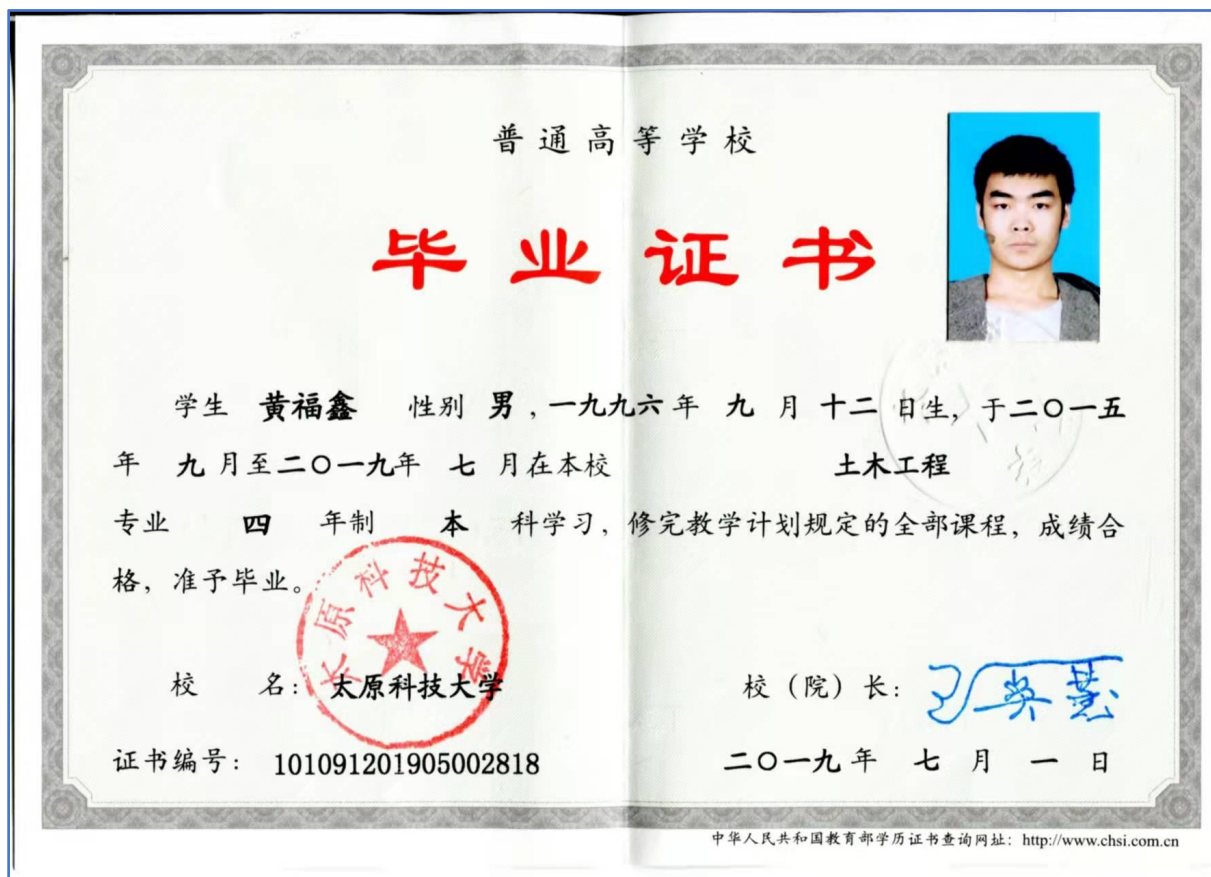 普通高等学校
毕业证书
学生 黄福鑫 性别 男，一九九六年 九 月 十二 日生，于二〇一五
年 九 月至二〇一九年 七 月在本校 土木工程
专业 四 年制 本 科学习，修完教学计划规定的全部课程，成绩合
格，准予毕业。
太原科技大学
校 名：太原科技大学 校（院）长：
证书编号：101091201905002818 二〇一九年 七 月 一 日
中华人民共和国教育部学历证书查询网址：http://www.chsi.com.cn